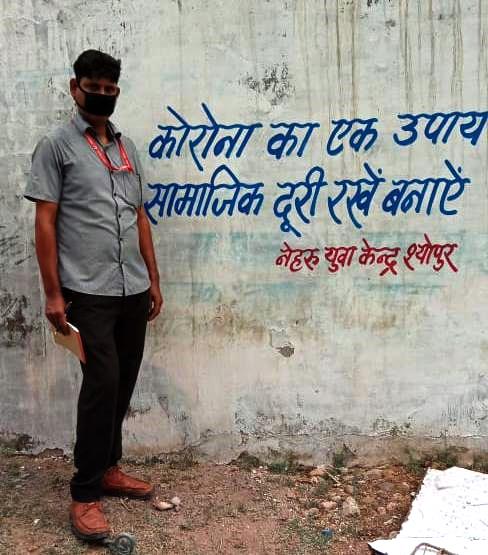 कोरोना का एक उपाय
सामाजिक दूरी रखें बनाऐं
नेहरू युवा केन्द्र श्योपुर